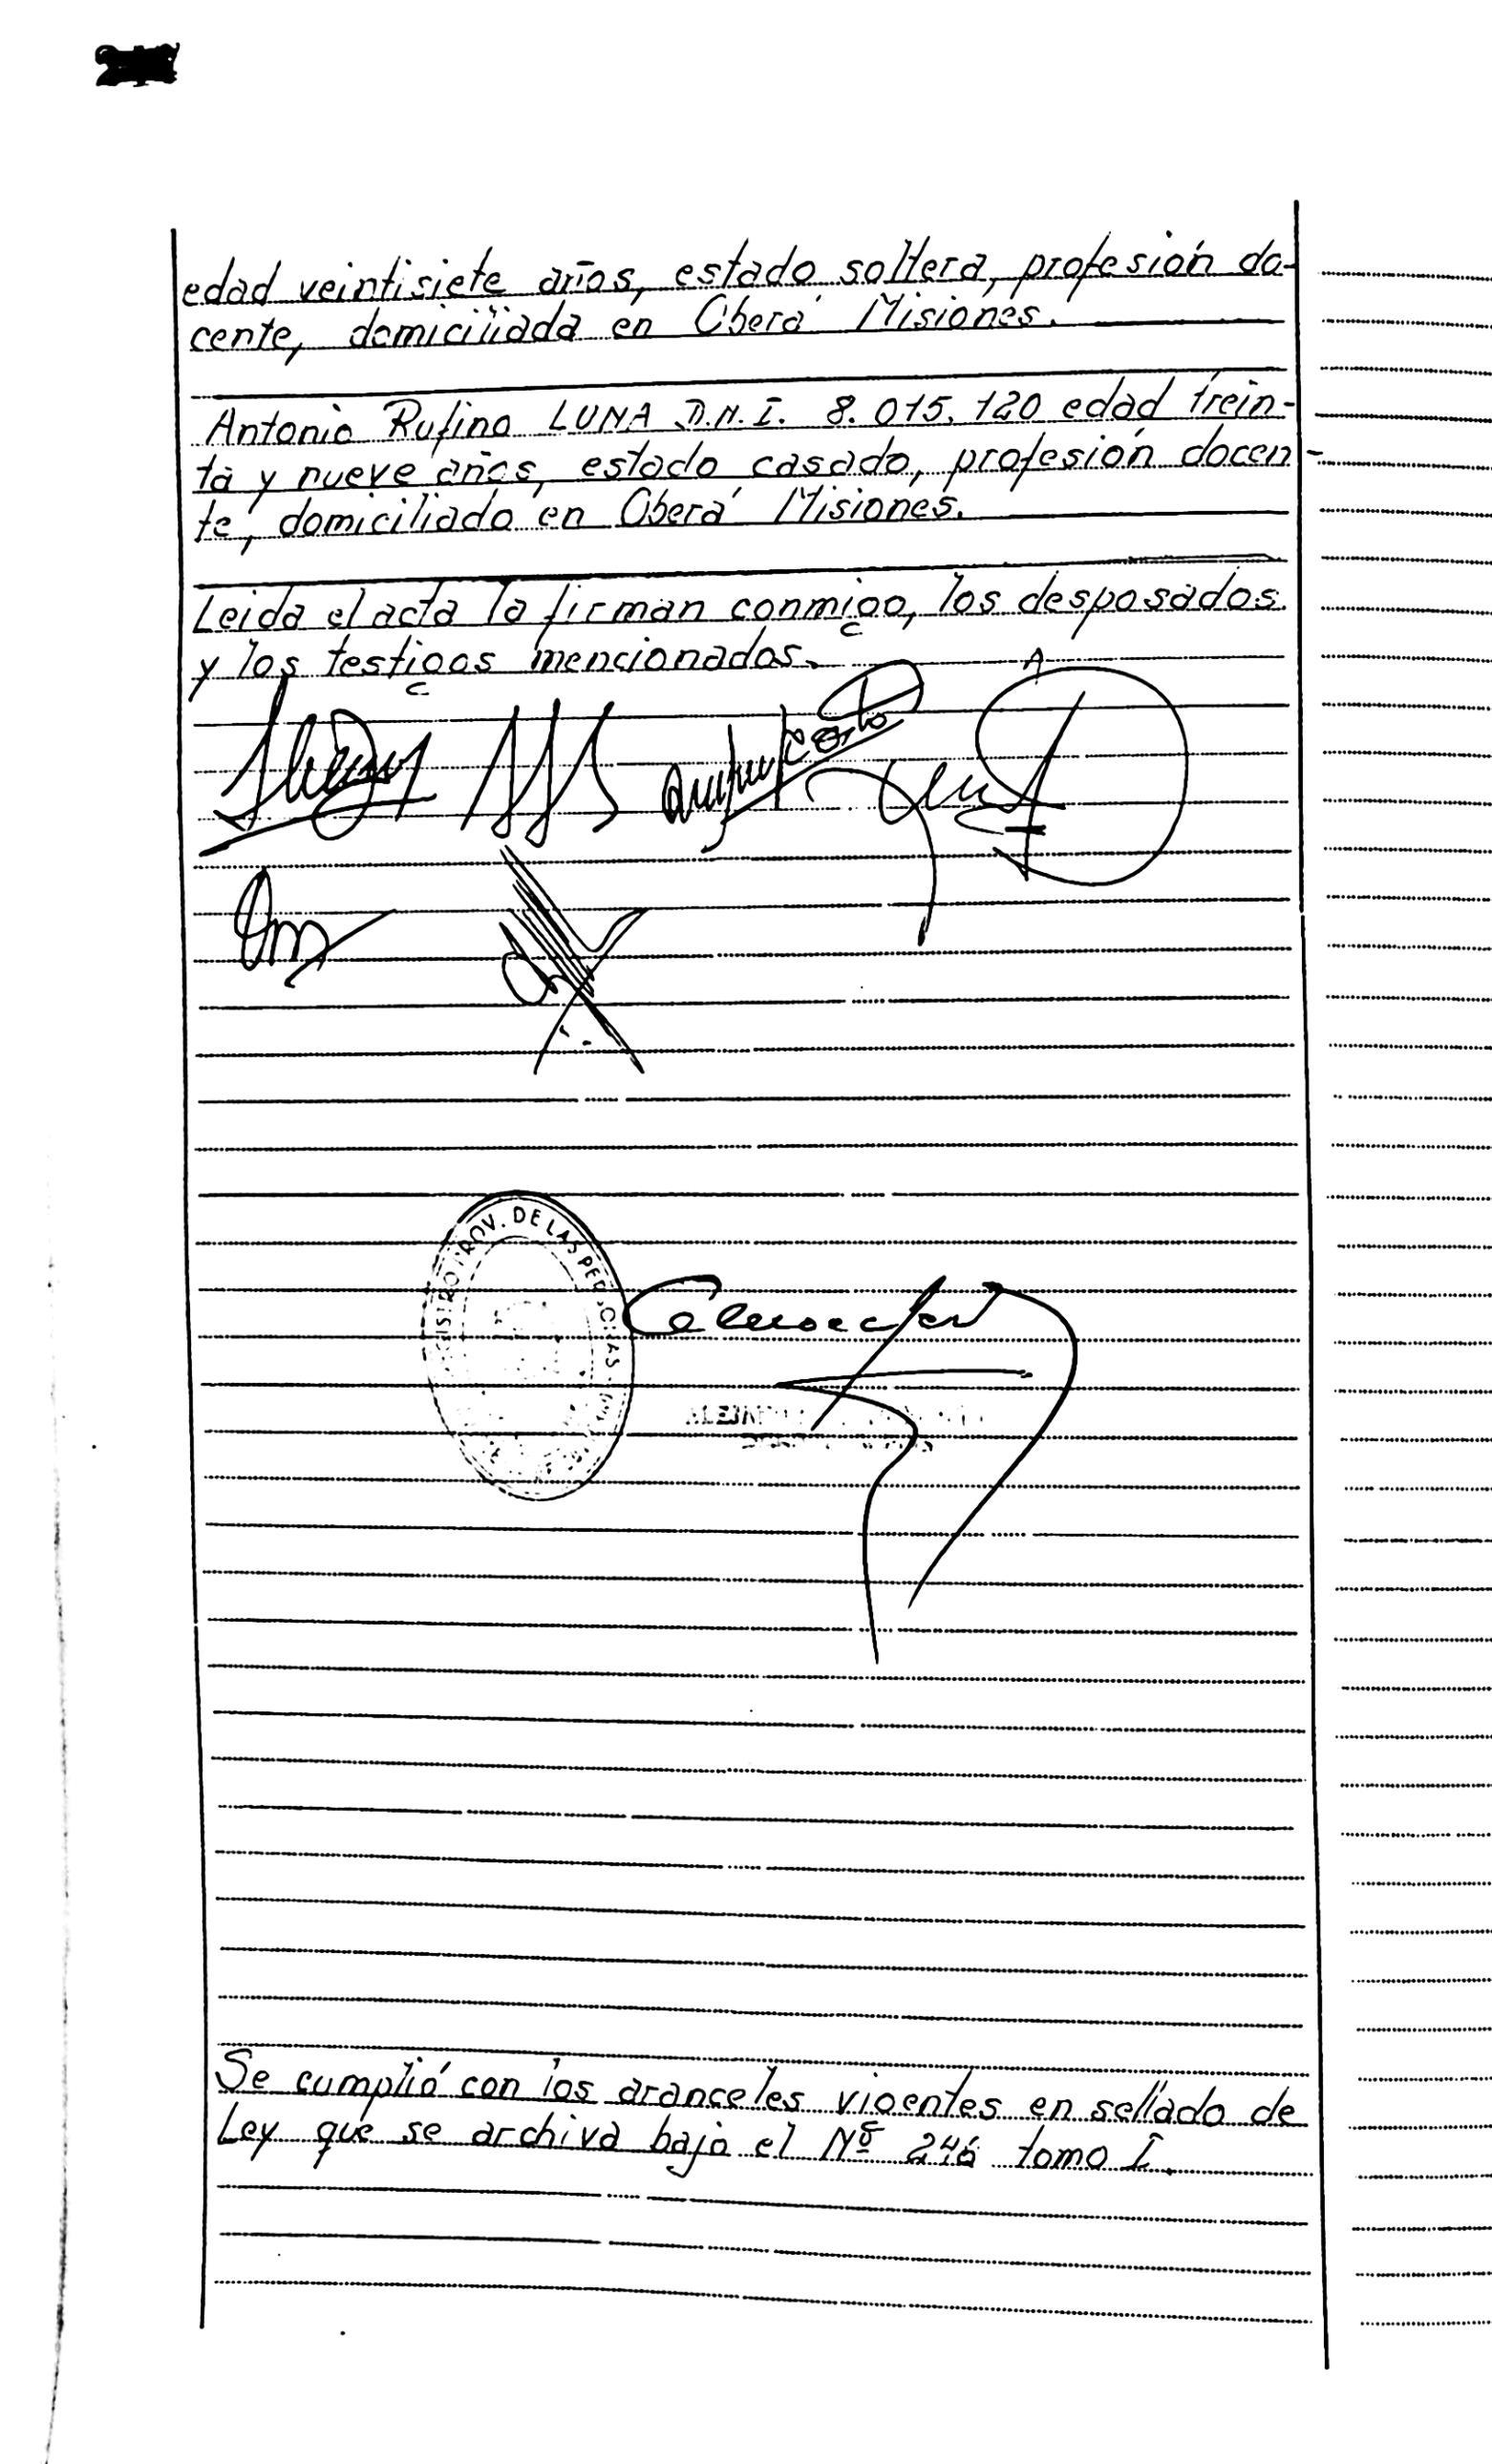 edad veintisiete años, estado soltera, profesión do-
cente, domiciliada en Oberá Misiones.
Antonio Rufino LUNA D.N.I. 8.015.120 edad trein-
ta y nueve años, estado casado, profesión docen-
te, domiciliado en Oberá Misiones.
Leida el acta la firman conmigo, los desposados
y los testigos mencionados.
PROV. DE LAS PERSONAS
Se cumplió con los aranceles vigentes en sellado de
Ley que se archiva bajo el Nº 246 tomo I.